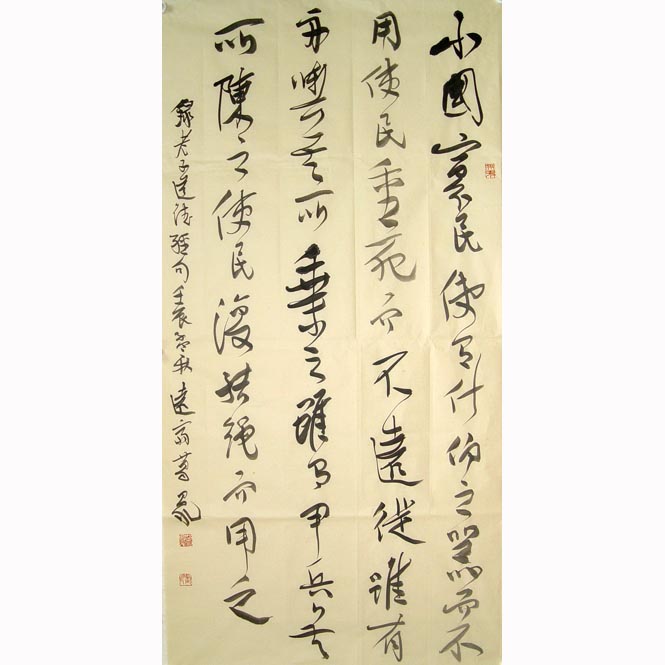 小國寡民使有什伯之器而不
用使民重死而不遠徙雖有
舟輿無所乘之雖有甲兵無
所陳之使民復結繩而用之
錄老子道德經句壬辰孟秋遠